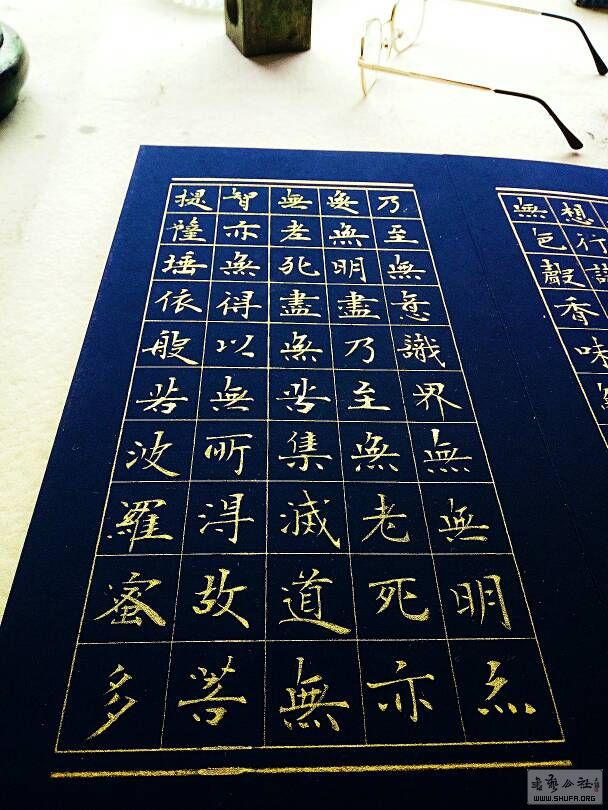 想行
無色聲香味
乃至無意識界無無明亦
無無明盡乃至無老死亦
無老死盡無苦集滅道無
智亦無得以無所得故菩
提薩埵依般若波羅蜜多
書藝公社
WWW.SHUFA.ORG